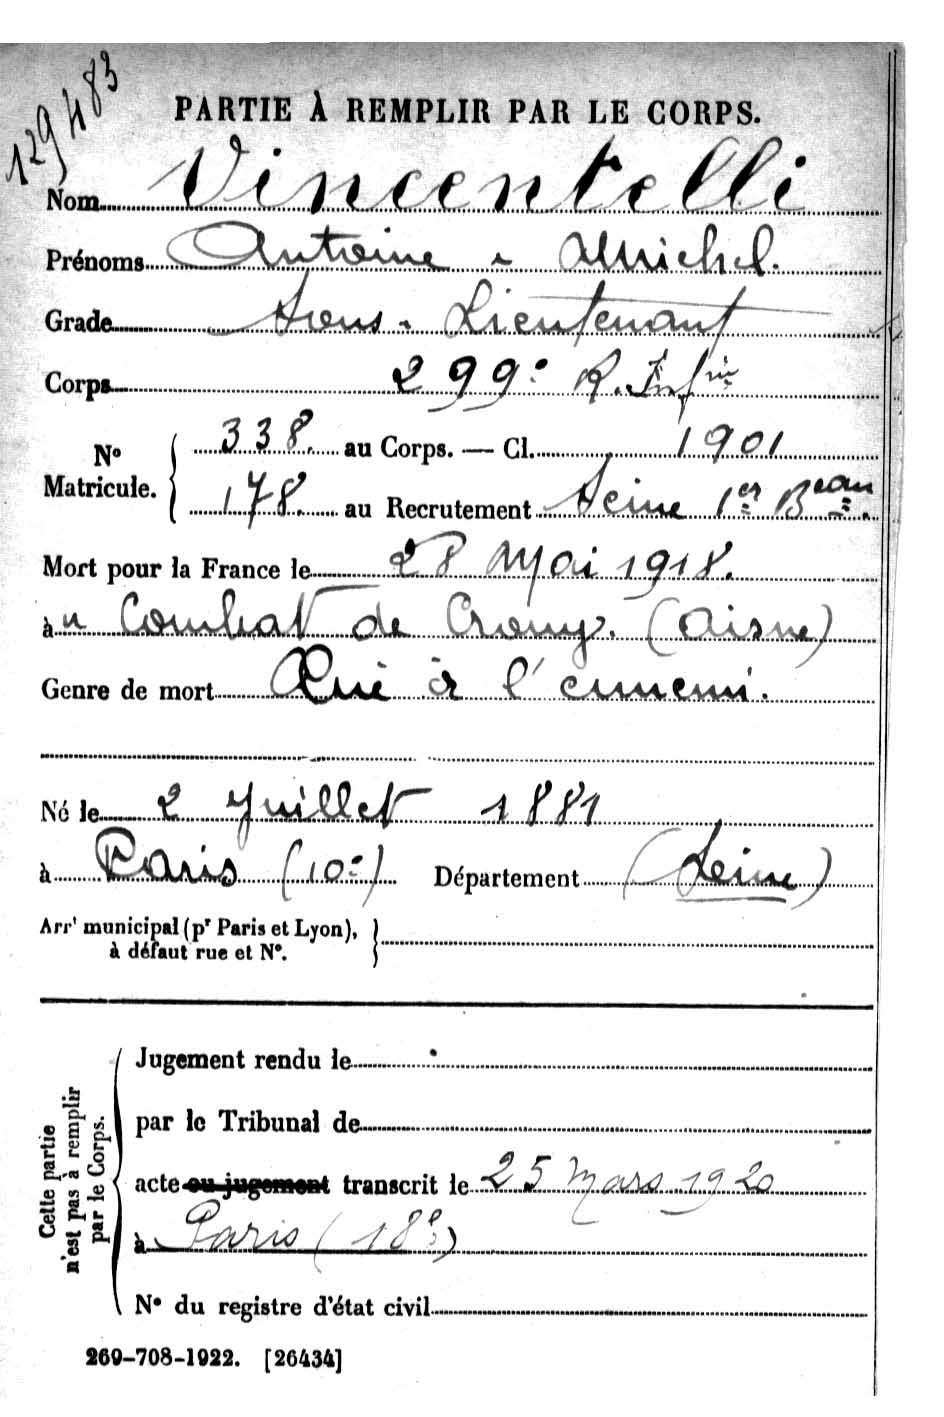 129483
PARTIE À REMPLIR PAR LE CORPS.
Nom Vincentelli
Prénoms Antoine - Michel.
Grade Sous-Lieutenant
Corps 299e R. Infie
No Matricule. 338. au Corps. — Cl. 1901
178. au Recrutement Seine 1er Beau.
Mort pour la France le 28 Mai 1918.
à u Combat de Crouy. (Aisne)
Genre de mort Tué à l'ennemi.
Né le 2 Juillet 1881
à Paris (10e) Département (Seine)
Arrt municipal (pr Paris et Lyon),
à défaut rue et No.
Cette partie
n'est pas à remplir
par le Corps.
Jugement rendu le
par le Tribunal de
acte ou jugement transcrit le 25 Mars 1920
à Paris (18e)
No du registre d'état civil
269-708-1922. [26434]